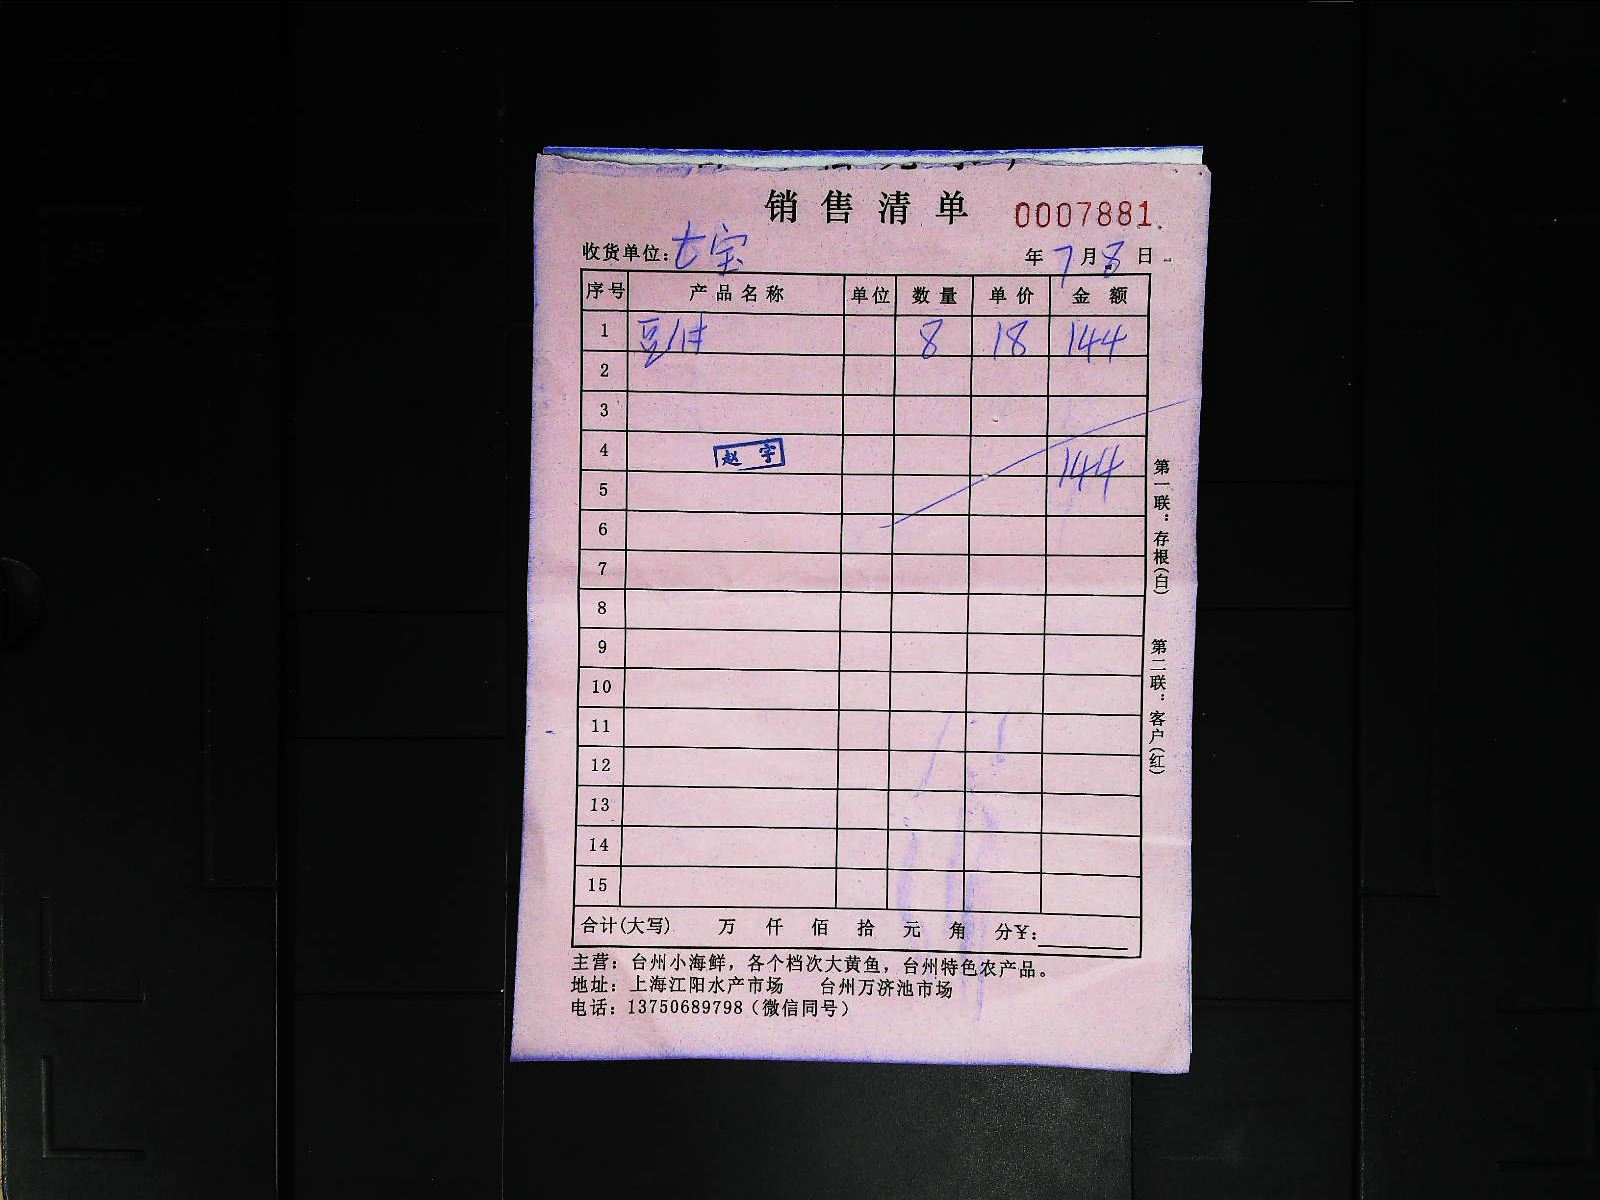 销售清单 0007881
收货单位：七宝 年7月8日
序号 产品名称 单位 数量 单价 金额
1 8 18 144
2
3
4 赵宇 144
5
6
7
8
9
10
11
12
13
14
15
合计(大写) 万 仟 佰 拾 元 角 分¥:
主营：台州小海鲜，各个档次大黄鱼，台州特色农产品。
地址：上海江阳水产市场 台州万济池市场
电话：13750689798（微信同号）
第一联：存根(白) 第二联：客户(红)